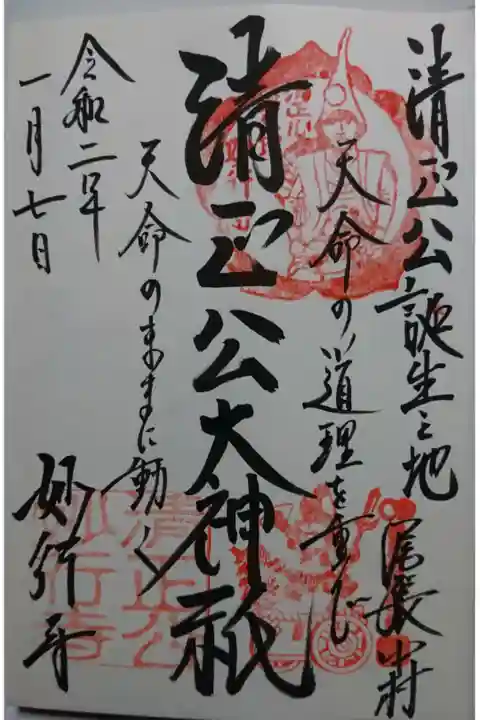 清正公誕生之地
尾張中村
天命の道理を重んじ
清正公大神祇
天命のままに動く
令和二年
一月七日
妙行寺
清正公
妙行寺